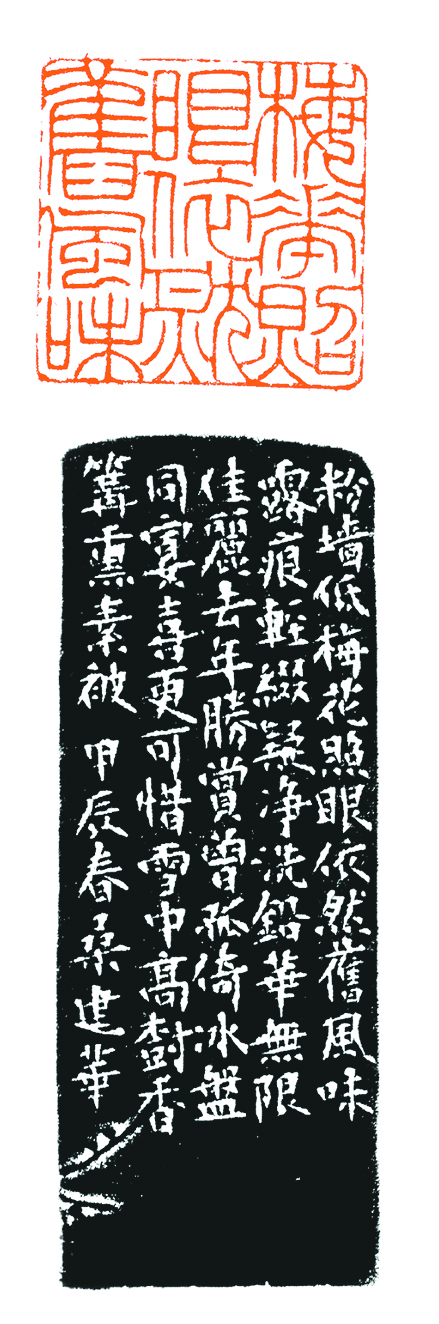 梅華照
眼依然
舊風味
粉墙低梅花照眼依然舊風味
露痕輕綴疑净洗鉛華無限
佳麗去年勝賞曾孤倚冰盤
同宴喜更可惜雪中髙樹香
篝熏素被 甲辰春桑建華